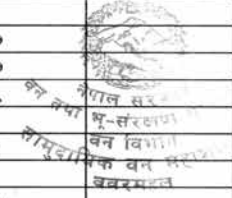 नेपाल सर
वन तथा भू-संरक्षण
वन विभाग
सामुदायिक वन महाशा
बबरमहल